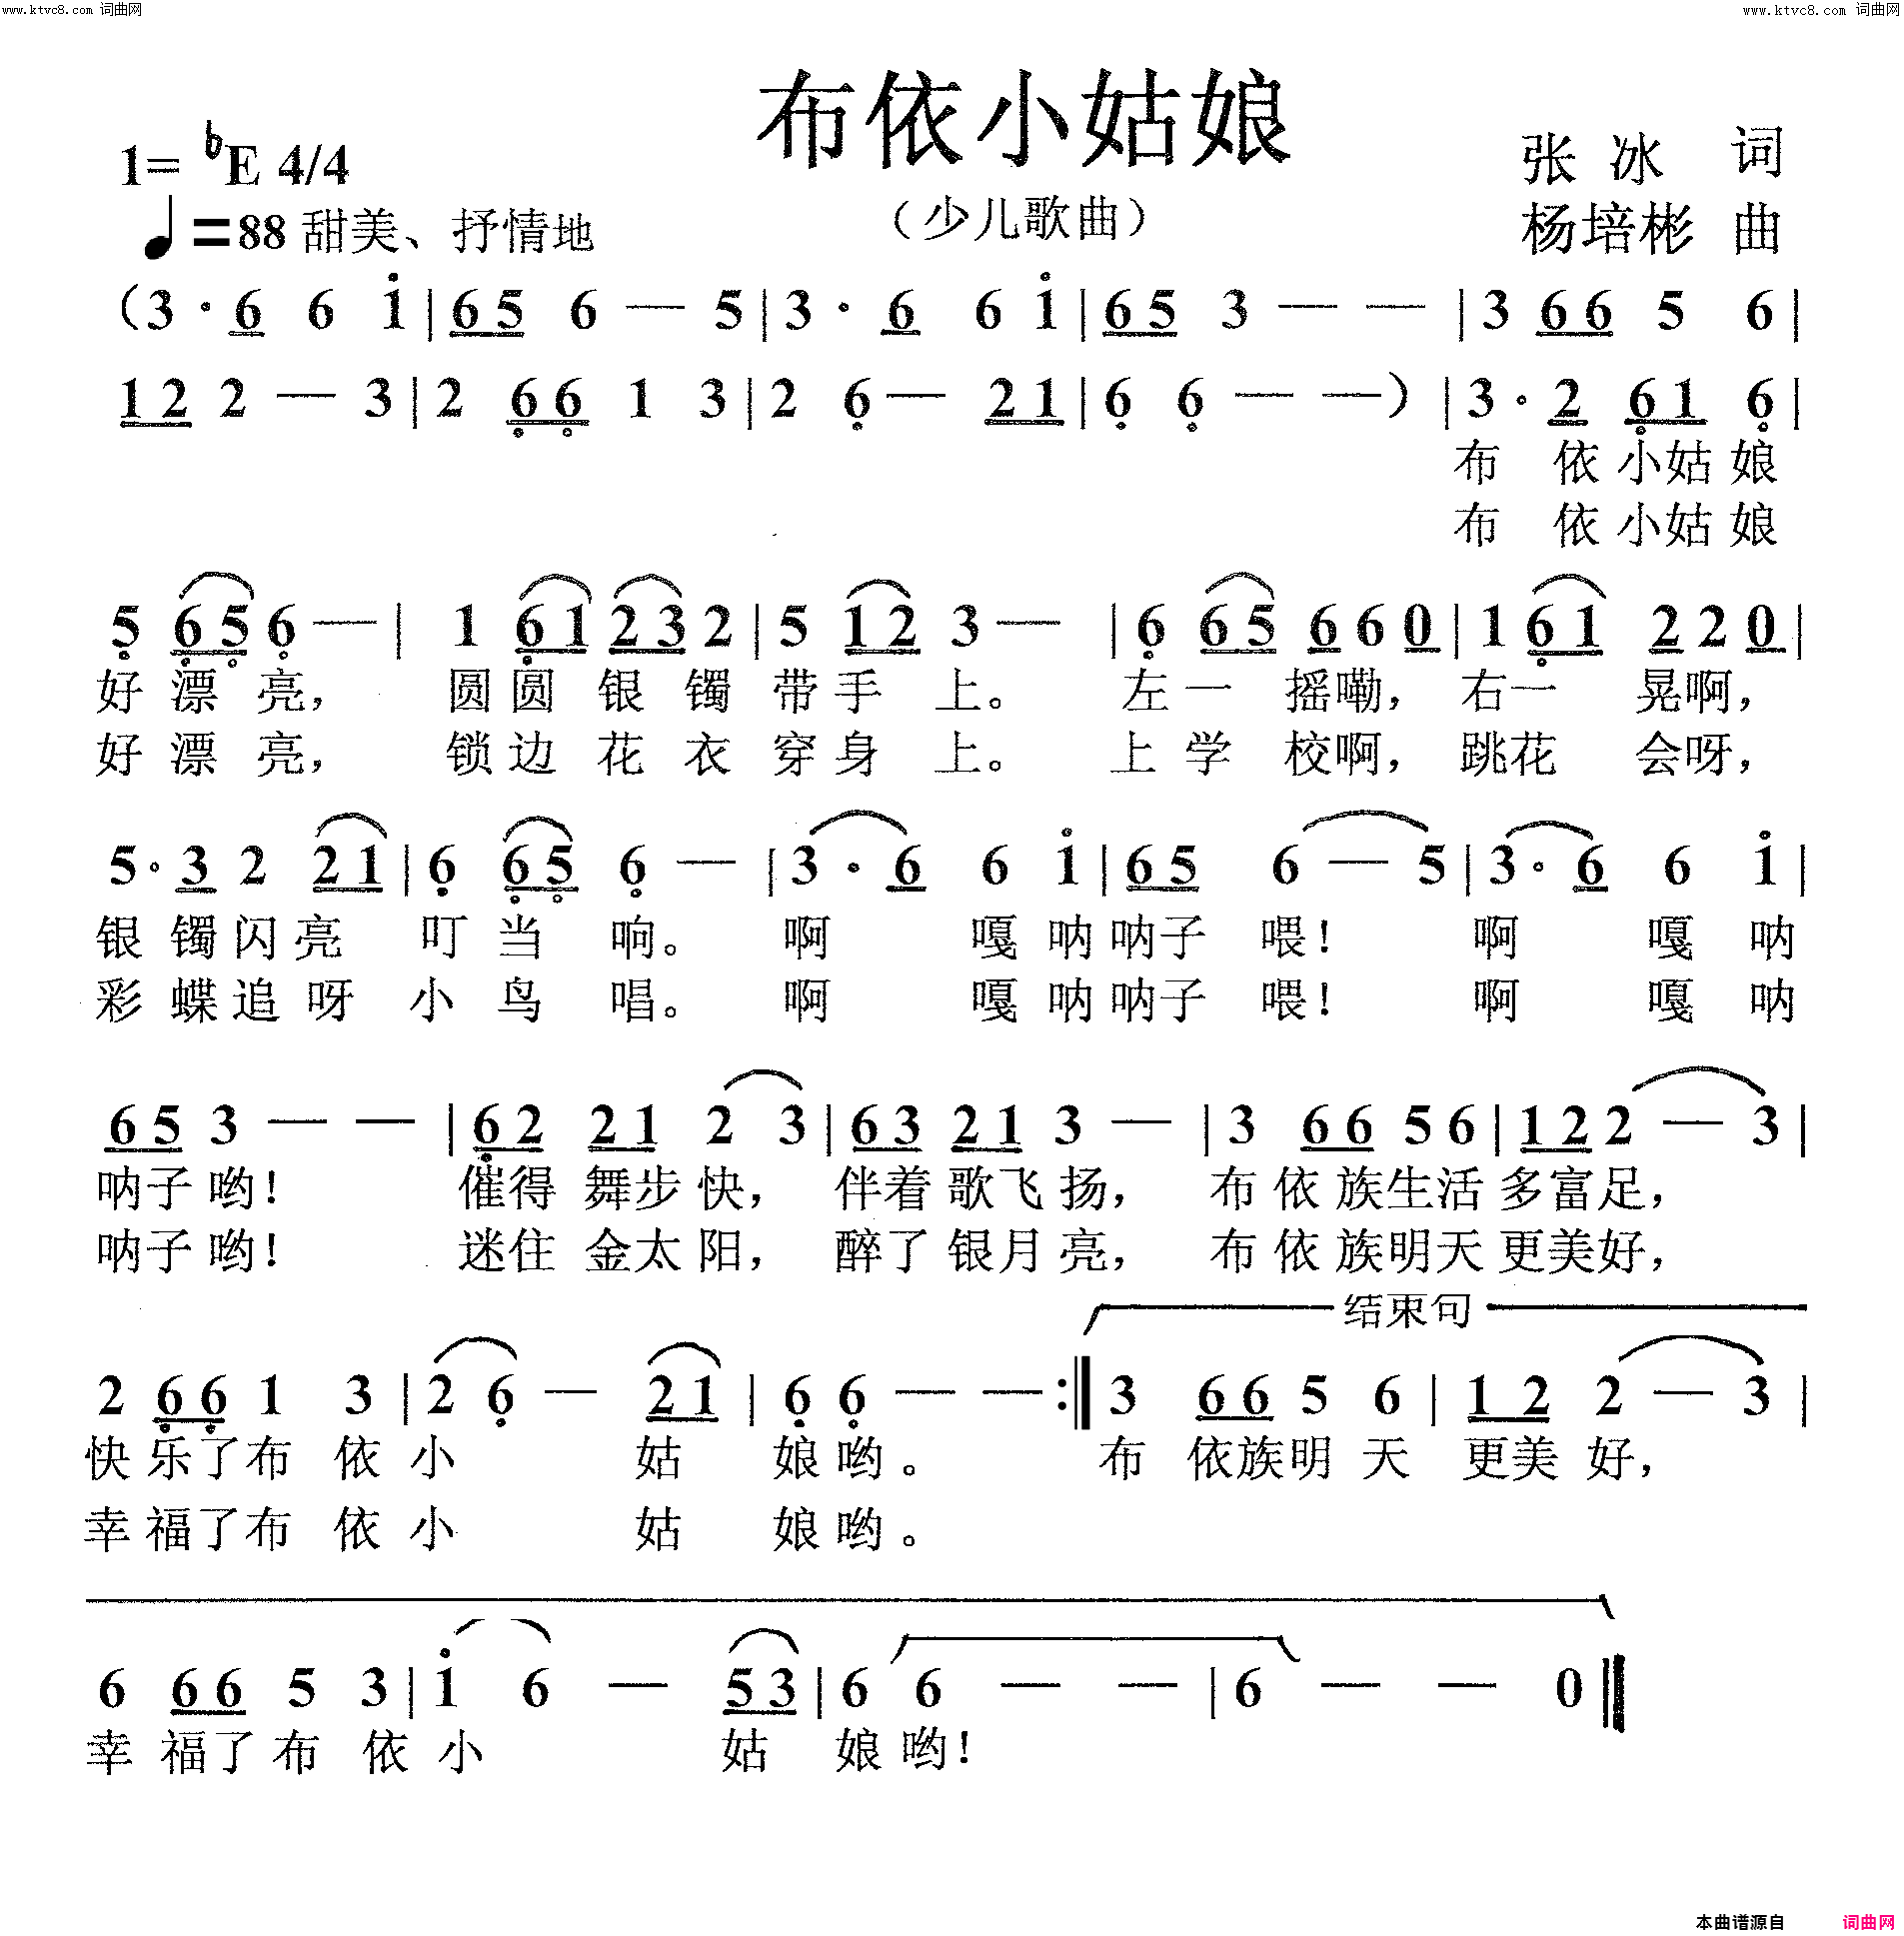 www.ktvc8.com 词曲网 www.ktvc8.com 词曲网
布依小姑娘
1= ♭E 4/4
张 冰 词
♩=88 甜美、抒情地
（少儿歌曲）
杨培彬 曲
（3 · 6 6 i | 6 5 6 — 5 | 3 · 6 6 i | 6 5 3 — — | 3 6 6 5 6 |
1 2 2 — 3 | 2 6 6 1 3 | 2 6 — 2 1 | 6 6 — — ） | 3 · 2 6 1 6 |
布 依 小姑 娘
布 依 小姑 娘
5 6 5 6 — | 1 6 1 2 3 2 | 5 1 2 3 — | 6 6 5 6 6 0 | 1 6 1 2 2 0 |
好 漂 亮， 圆 圆 银 镯 带 手 上。 左 一 摇嘞， 右一 晃啊，
好 漂 亮， 锁 边 花 衣 穿 身 上。 上 学 校啊， 跳花 会呀，
5 · 3 2 2 1 | 6 6 5 6 — | 3 · 6 6 i | 6 5 6 — 5 | 3 · 6 6 i |
银 镯 闪 亮 叮 当 响。 啊 嘎 呐 呐子 喂！ 啊 嘎 呐
彩 蝶 追 呀 小 鸟 唱。 啊 嘎 呐 呐子 喂！ 啊 嘎 呐
6 5 3 — — | 6 2 2 1 2 3 | 6 3 2 1 3 — | 3 6 6 5 6 | 1 2 2 — 3 |
呐子 哟！ 催得 舞步 快， 伴着 歌飞 扬， 布 依 族生活 多富足，
呐子 哟！ 迷住 金太 阳， 醉了 银月 亮， 布 依 族明天 更美好，
结束句
2 6 6 1 3 | 2 6 — 2 1 | 6 6 — — :‖ 3 6 6 5 6 | 1 2 2 — 3 |
快 乐了布 依 小 姑 娘哟。 布 依族明 天 更美 好，
幸 福了布 依 小 姑 娘哟。
6 6 6 5 3 | i 6 — 5 3 | 6 6 — — | 6 — — 0 ‖
幸 福了 布 依 小 姑 娘 哟！
本曲谱源自 词曲网